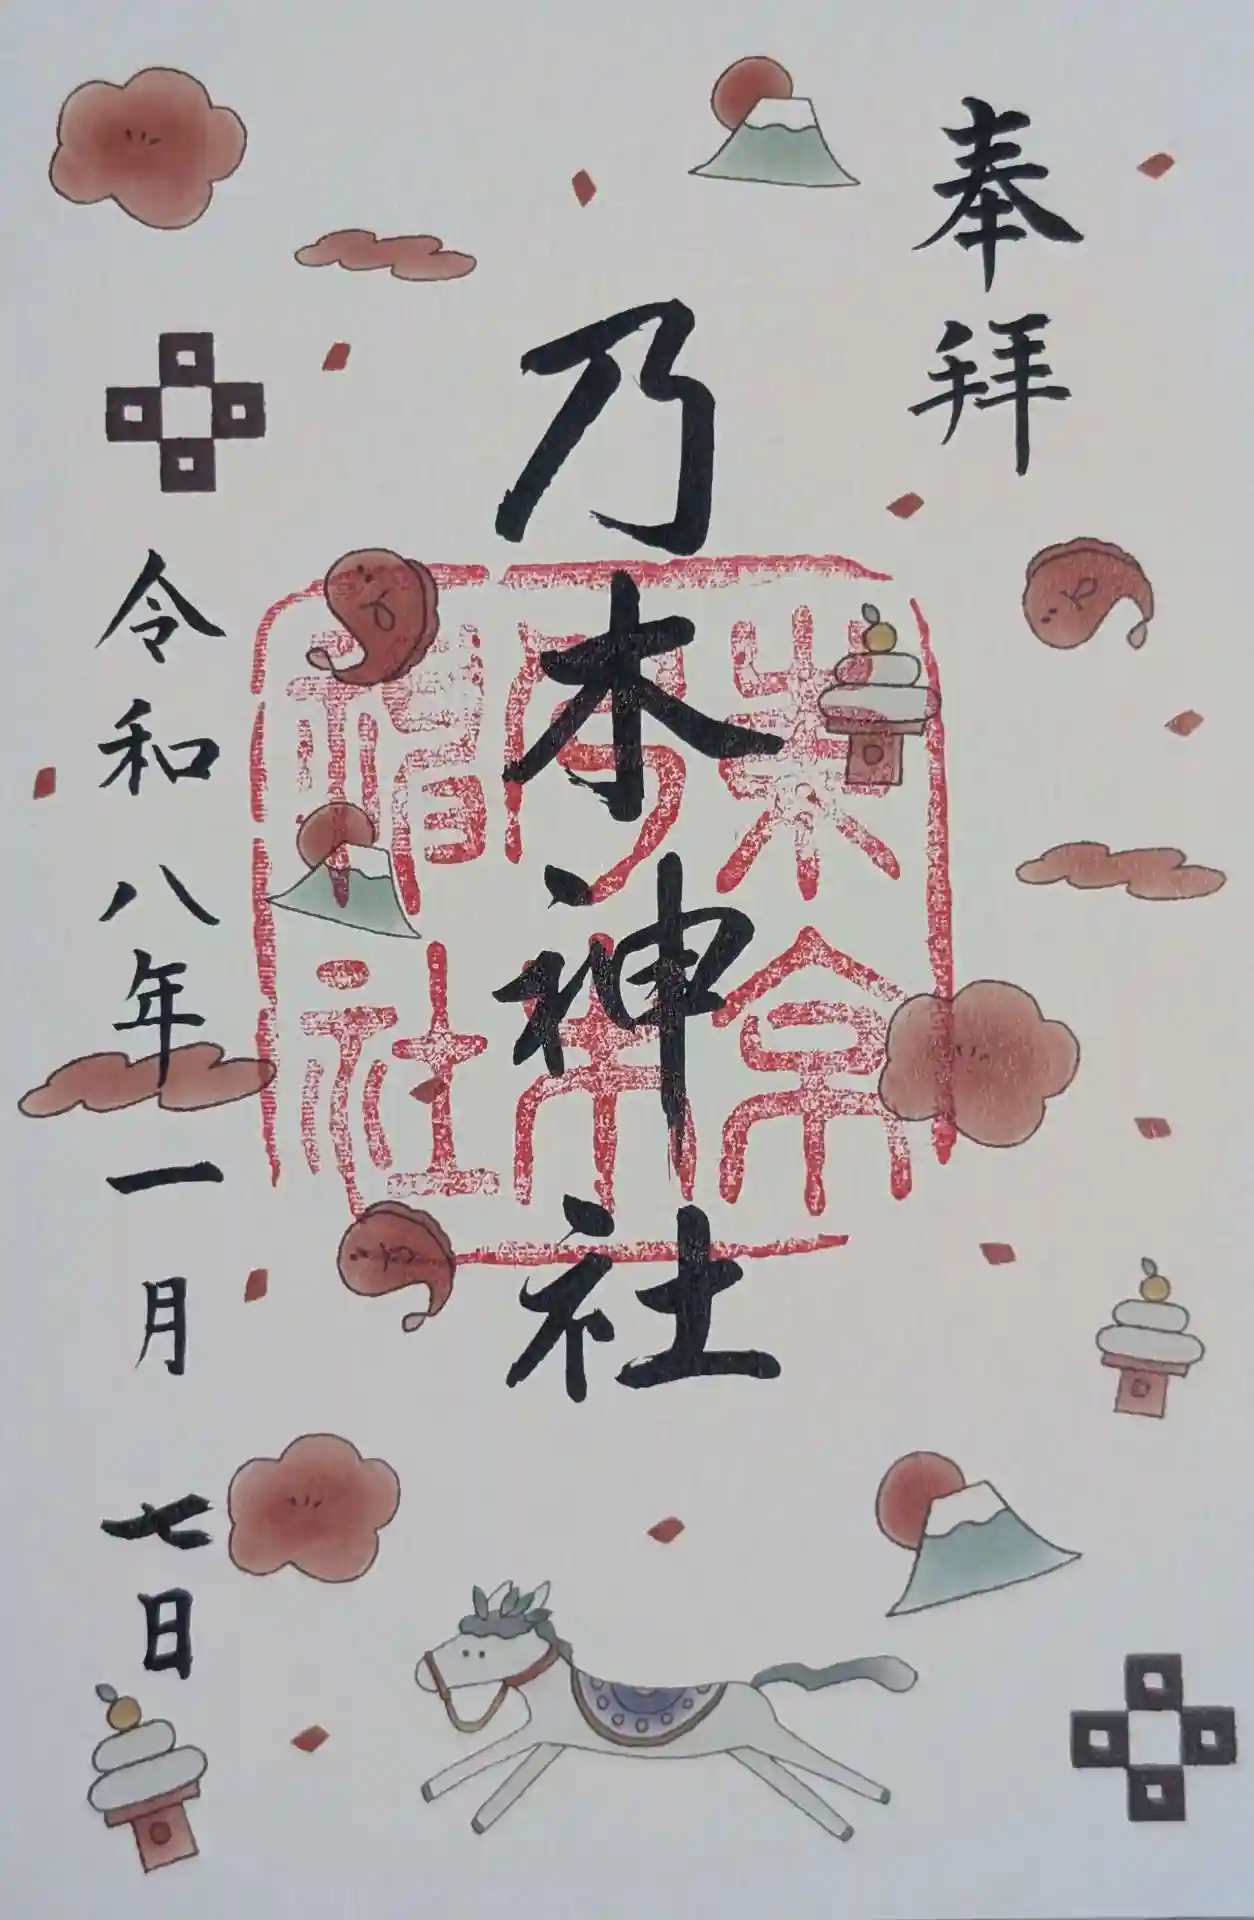 奉拝
乃木神社
令和八年一月七日
東京乃木神社